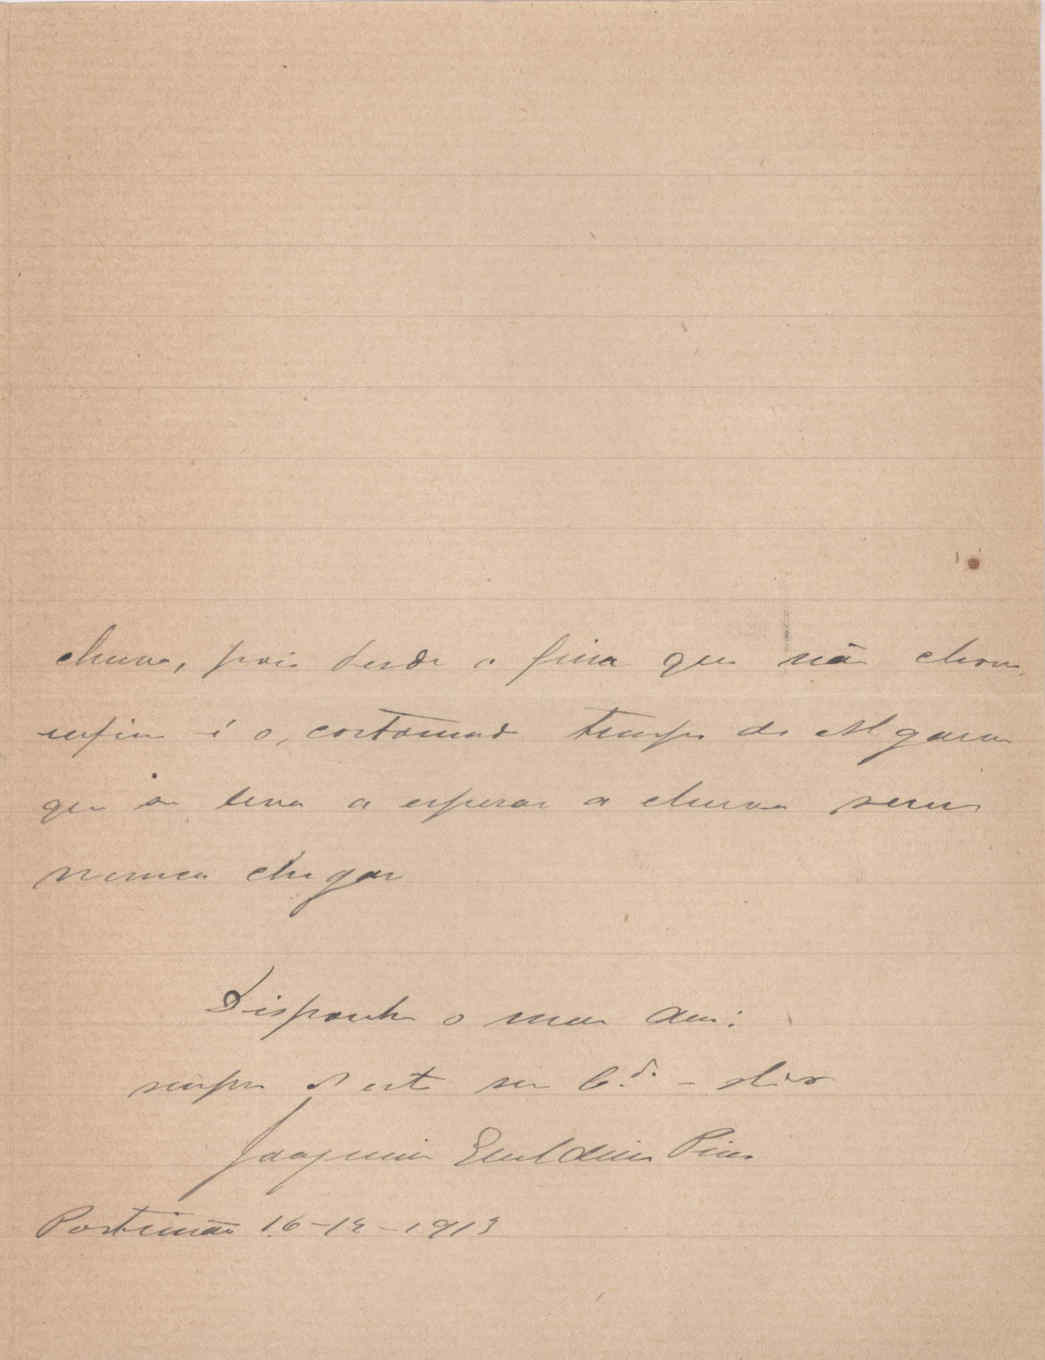 chuva, pois desde a feira que não chove,
enfim é o costumado tempo do Algarve
que se leva a esperar a chuva sem
nunca chegar
Disponha o meu Am:
sempre d'este seu C.do
Joaquim Gualdino Pires
Portimão 16-12-1913